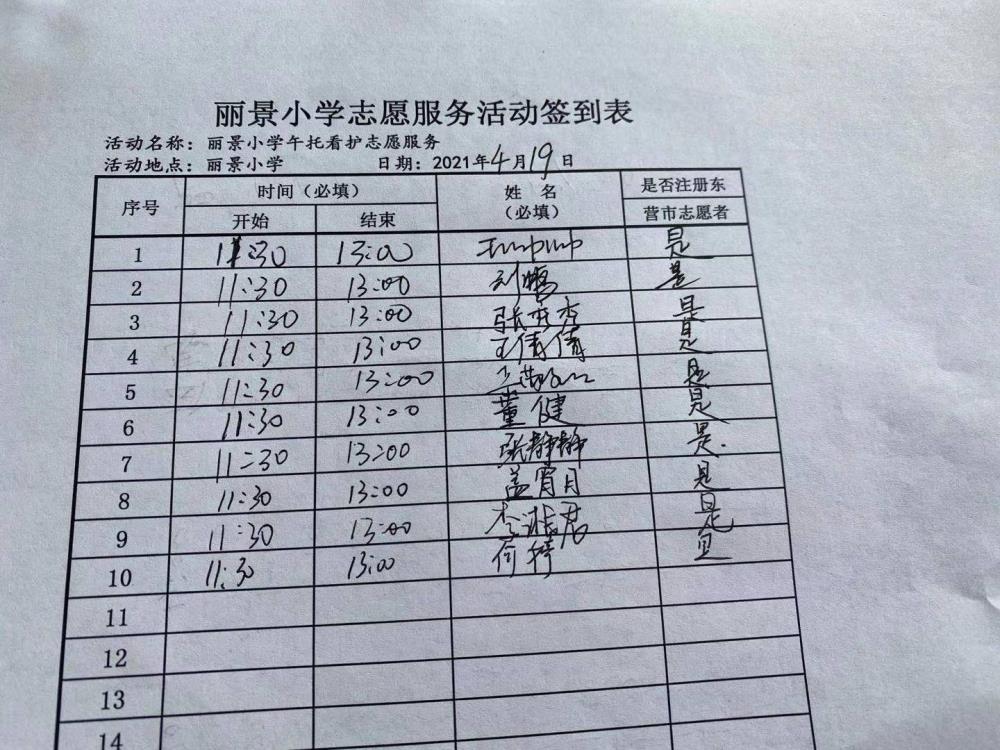 丽景小学志愿服务活动签到表
活动名称：丽景小学午托看护志愿服务
活动地点：丽景小学 日期：2021年4月19日
序号 时间（必填） 姓 名（必填） 是否注册东营市志愿者
开始 结束
1 11:30 13:00 是
2 11:30 13:00 刘鹏 是
3 11:30 13:00 张秀秀 是
4 11:30 13:00 王倩倩 是
5 11:30 13:00 是
6 11:30 13:00 董健 是
7 11:30 13:00 张静静 是
8 11:30 13:00 盖宵月 是
9 11:30 13:00 是
10 11:30 13:00 荷婷 是
11
12
13
14